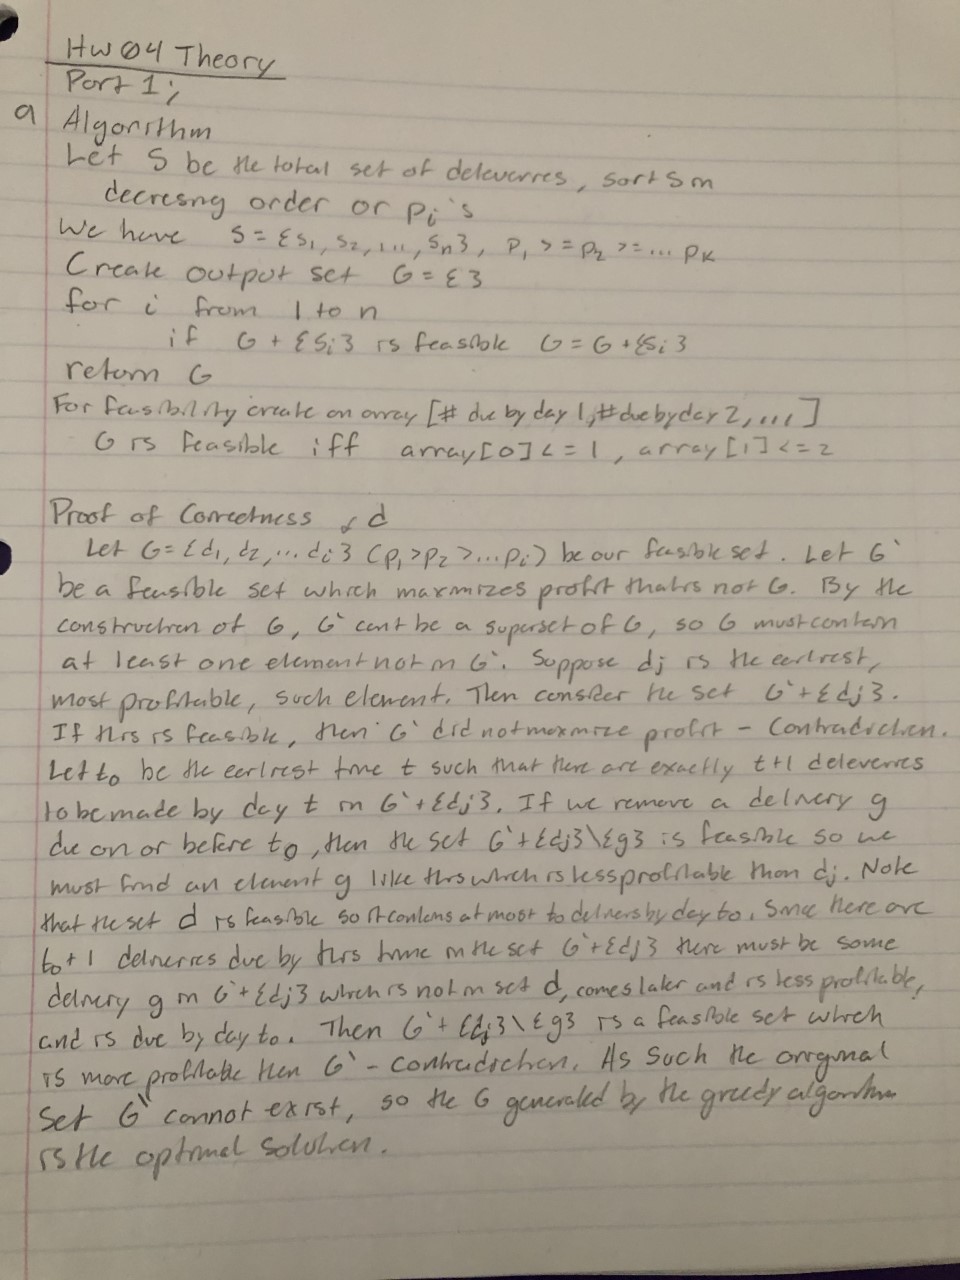 HW 04 Theory
Part 1;
a Algorithm
Let S be the total set of deleverres, sort S in
decresng order or pi's
We have S = {s1, s2, ..., sn}, p1 >= p2 >= ... pk
Create output set G = {}
for i from 1 to n
if G + {si} is feasible G = G + {si}
return G
For feasibility create an array [# due by day 1, # due by day 2, ...]
G is feasible iff array[0] <= 1, array[1] <= 2
Proof of Correctness
d
Let G = {d1, d2, ... di} (p1 > p2 > ... pi) be our feasible set. Let G`
be a feasible set which maxmizes profit that is not G. By the
construction of G, G` cant be a superset of G, so G must contain
at least one element not in G`. Suppose dj is the earlrest,
most profitable, such element. Then consider the set G` + {dj}.
If this is feasible, then G` did not maxmize profit - Contradiction.
Let to be the earlrest time t such that there are exactly t+1 deleverres
to be made by day t in G` + {dj}. If we remove a delivery g
due on or before to, then the set G` + {dj} \ {g} is feasible so we
must find an element g like this which is less profitable than dj. Note
that the set d is feasible so it contains at most to delivers by day to. Since there are
to + 1 deliverres due by this time in the set G` + {dj} there must be some
delivery g in G` + {dj} which is not in set d, comes later and is less profitable,
and is due by day to. Then G` + {dj} \ {g} is a feasible set which
is more profitable then G` - Contradiction. As Such the original
Set G` cannot exist, so the G generated by the greedy algorithm
is the optimal solution.